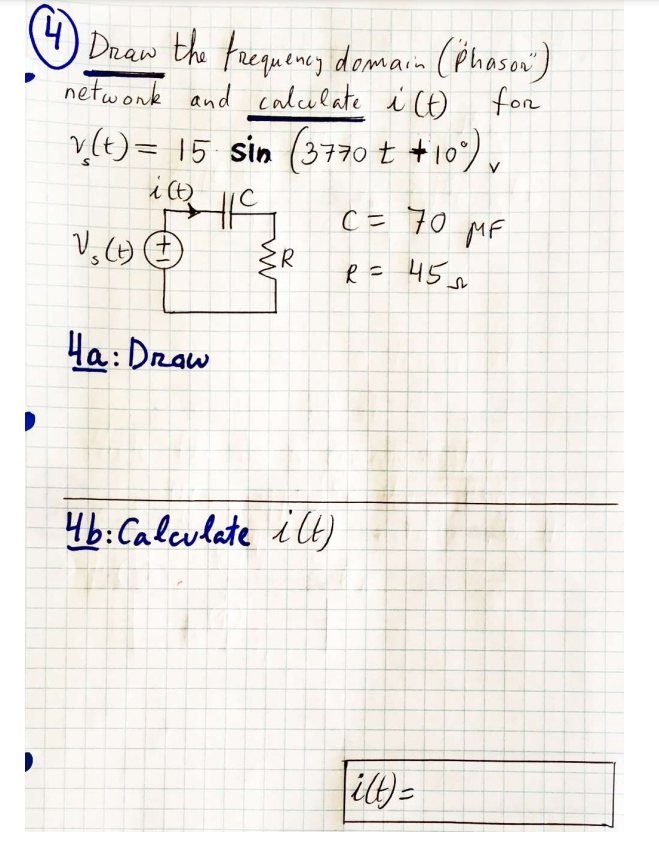 4 Draw the frequency domain ("Phasor")
network and calculate i(t) for
vs(t) = 15 sin (3770 t + 10°) v
i(t)
C
C = 70 μF
Vs(t)
+
−
R
R = 45 Ω
4a: Draw
4b: Calculate i(t)
i(t) =